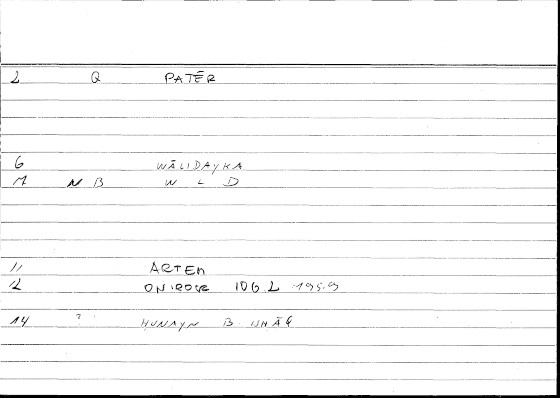 2 Q PATĒR
6 WĀLIDAYKA
7 N B W L D
11 ARTEM
12 ONIROCR 106 2 195.9
14 ? HUNAYN B ISHĀQ